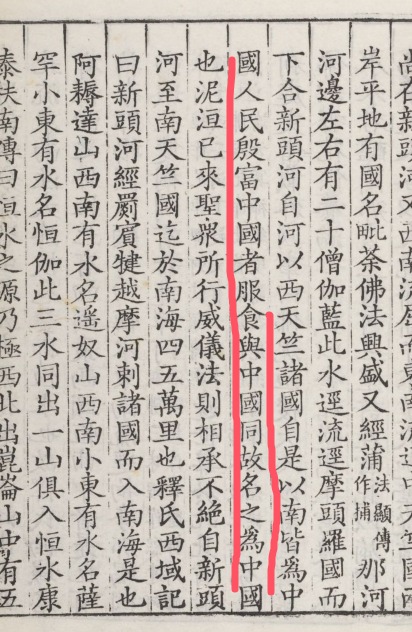 尚在新頭河又西南流屈而東南流逕中天竺國兩
岸平地有國名毗荼佛法興盛又經蒲法顯傳作捕那河
河邊左右有二十僧伽藍此水逕流逕摩頭羅國而
下合新頭河自河以西天竺諸國自是以南皆為中
國人民殷富中國者服食與中國同故名之為中國
也泥洹已來聖衆所行威儀法則相承不絕自新頭
河至南天竺國迄於南海四五萬里也釋氏西域記
曰新頭河經罽賓犍越摩河刺諸國而入南海是也
阿耨達山西南有水名遥奴山西南小東有水名薩
罕小東有水名恒伽此三水同出一山俱入恒水康
泰扶南傳曰恒水之源乃極西北出崑崙山中有五